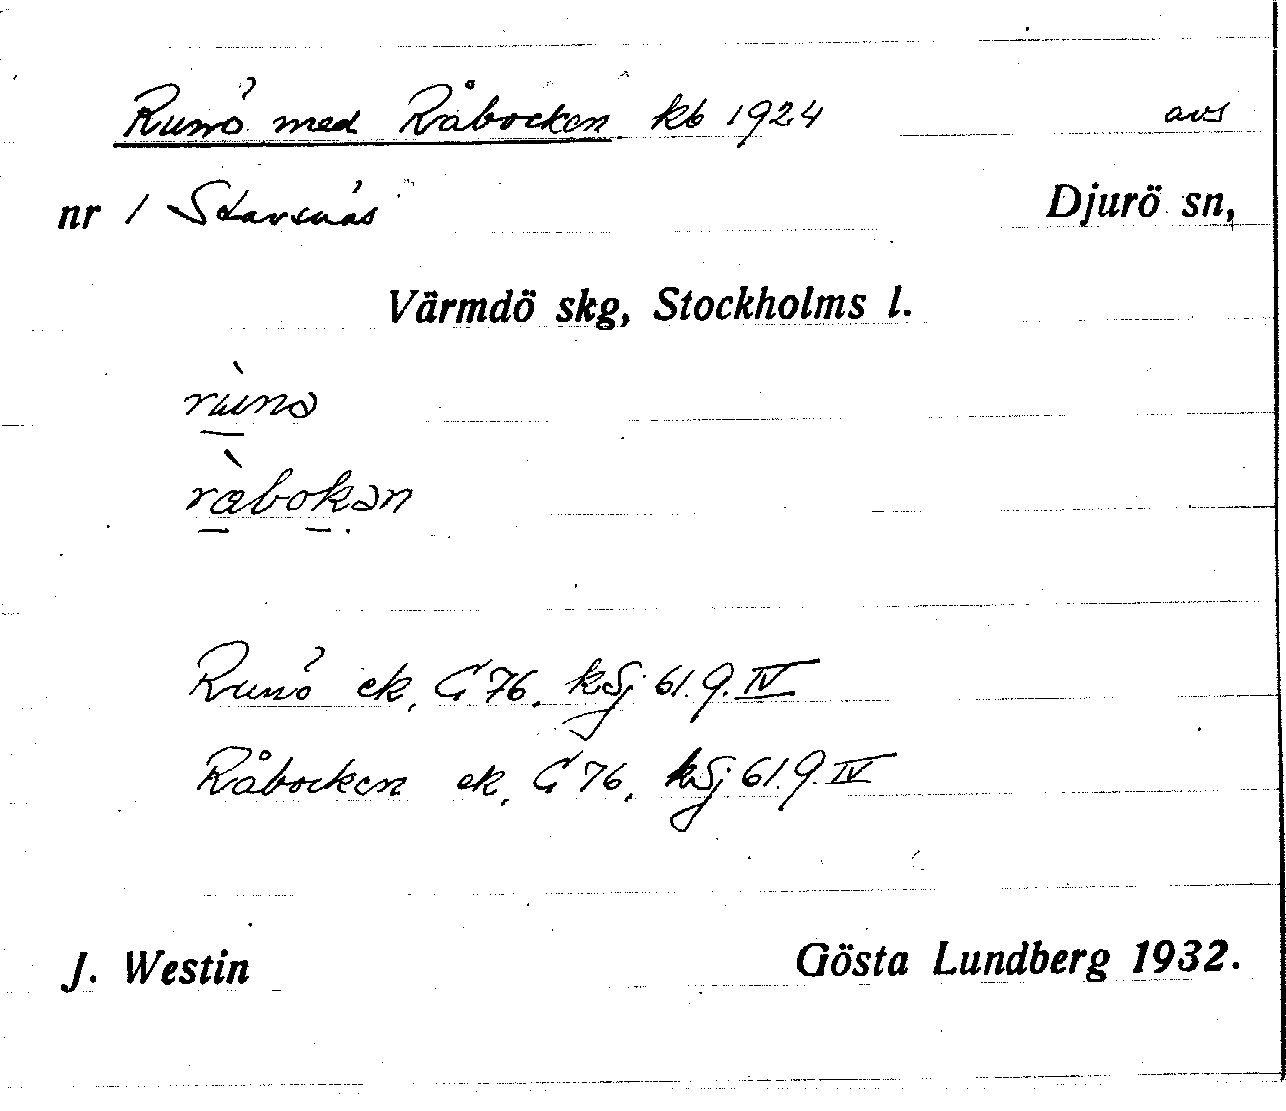 Runö med Råbocken kb 1924 avs
nr 1 Stavsnäs Djurö sn,
Värmdö skg, Stockholms l.
rùnə
ràbokən
Runö ek, G 76, kSj 61.9.IV
Råbocken ek, G 76, kSj 61.9.IV
J. Westin Gösta Lundberg 1932.